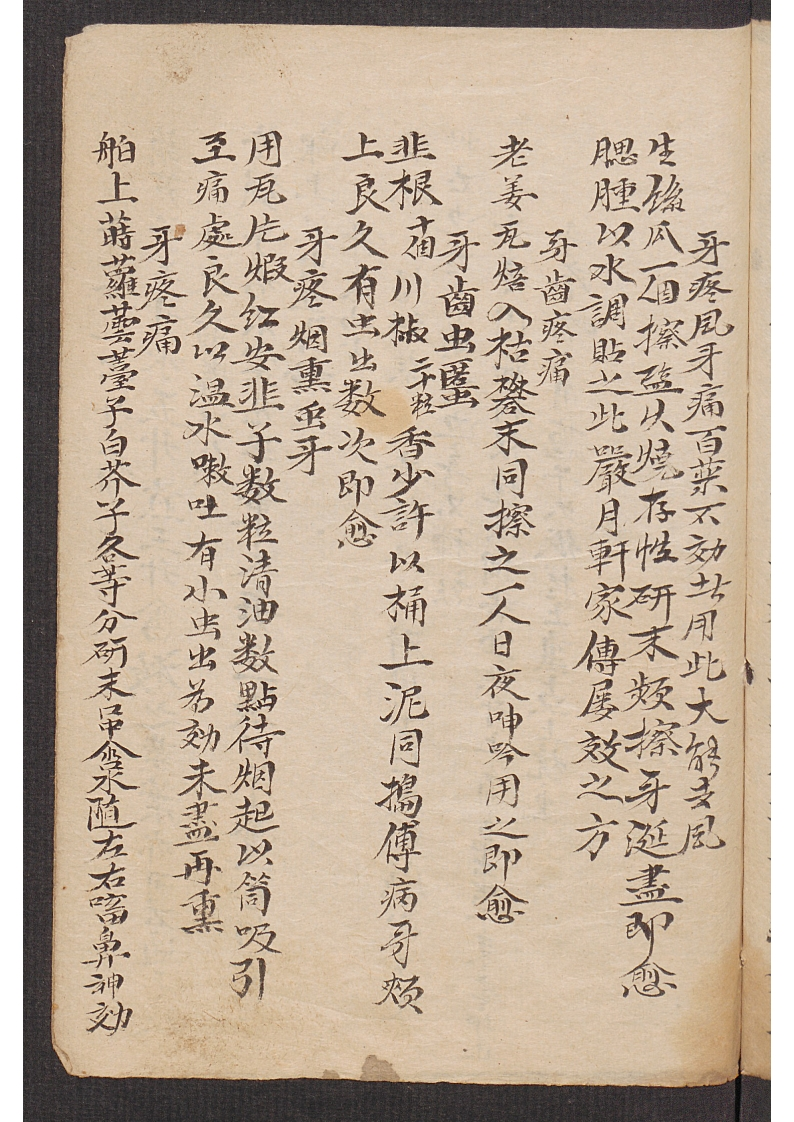 牙疼风牙痛百藥不効者用此大能去风
生絲瓜一個擦盐火燒存性研末頻擦牙涎盡即愈
腮腫以水調貼之此嚴月軒家傳屡效之方
牙齒疼痛
老姜瓦焙入枯礬末同擦之一人日夜呻吟用之即愈
牙齒虫䘌
韭根十個川椒二十粒香少許以桶上泥同搗傅病牙頰
上良久有虫出数次即愈
牙疼烟熏虫牙
用瓦片煅红安韭子数粒清油数點待烟起以筒吸引
至痛處良久以温水嗽吐有小虫出為効未盡再熏
牙疼痛
舶上蒔蘿蕓薹子白芥子各等分研末口中含水随左右㗜鼻神効